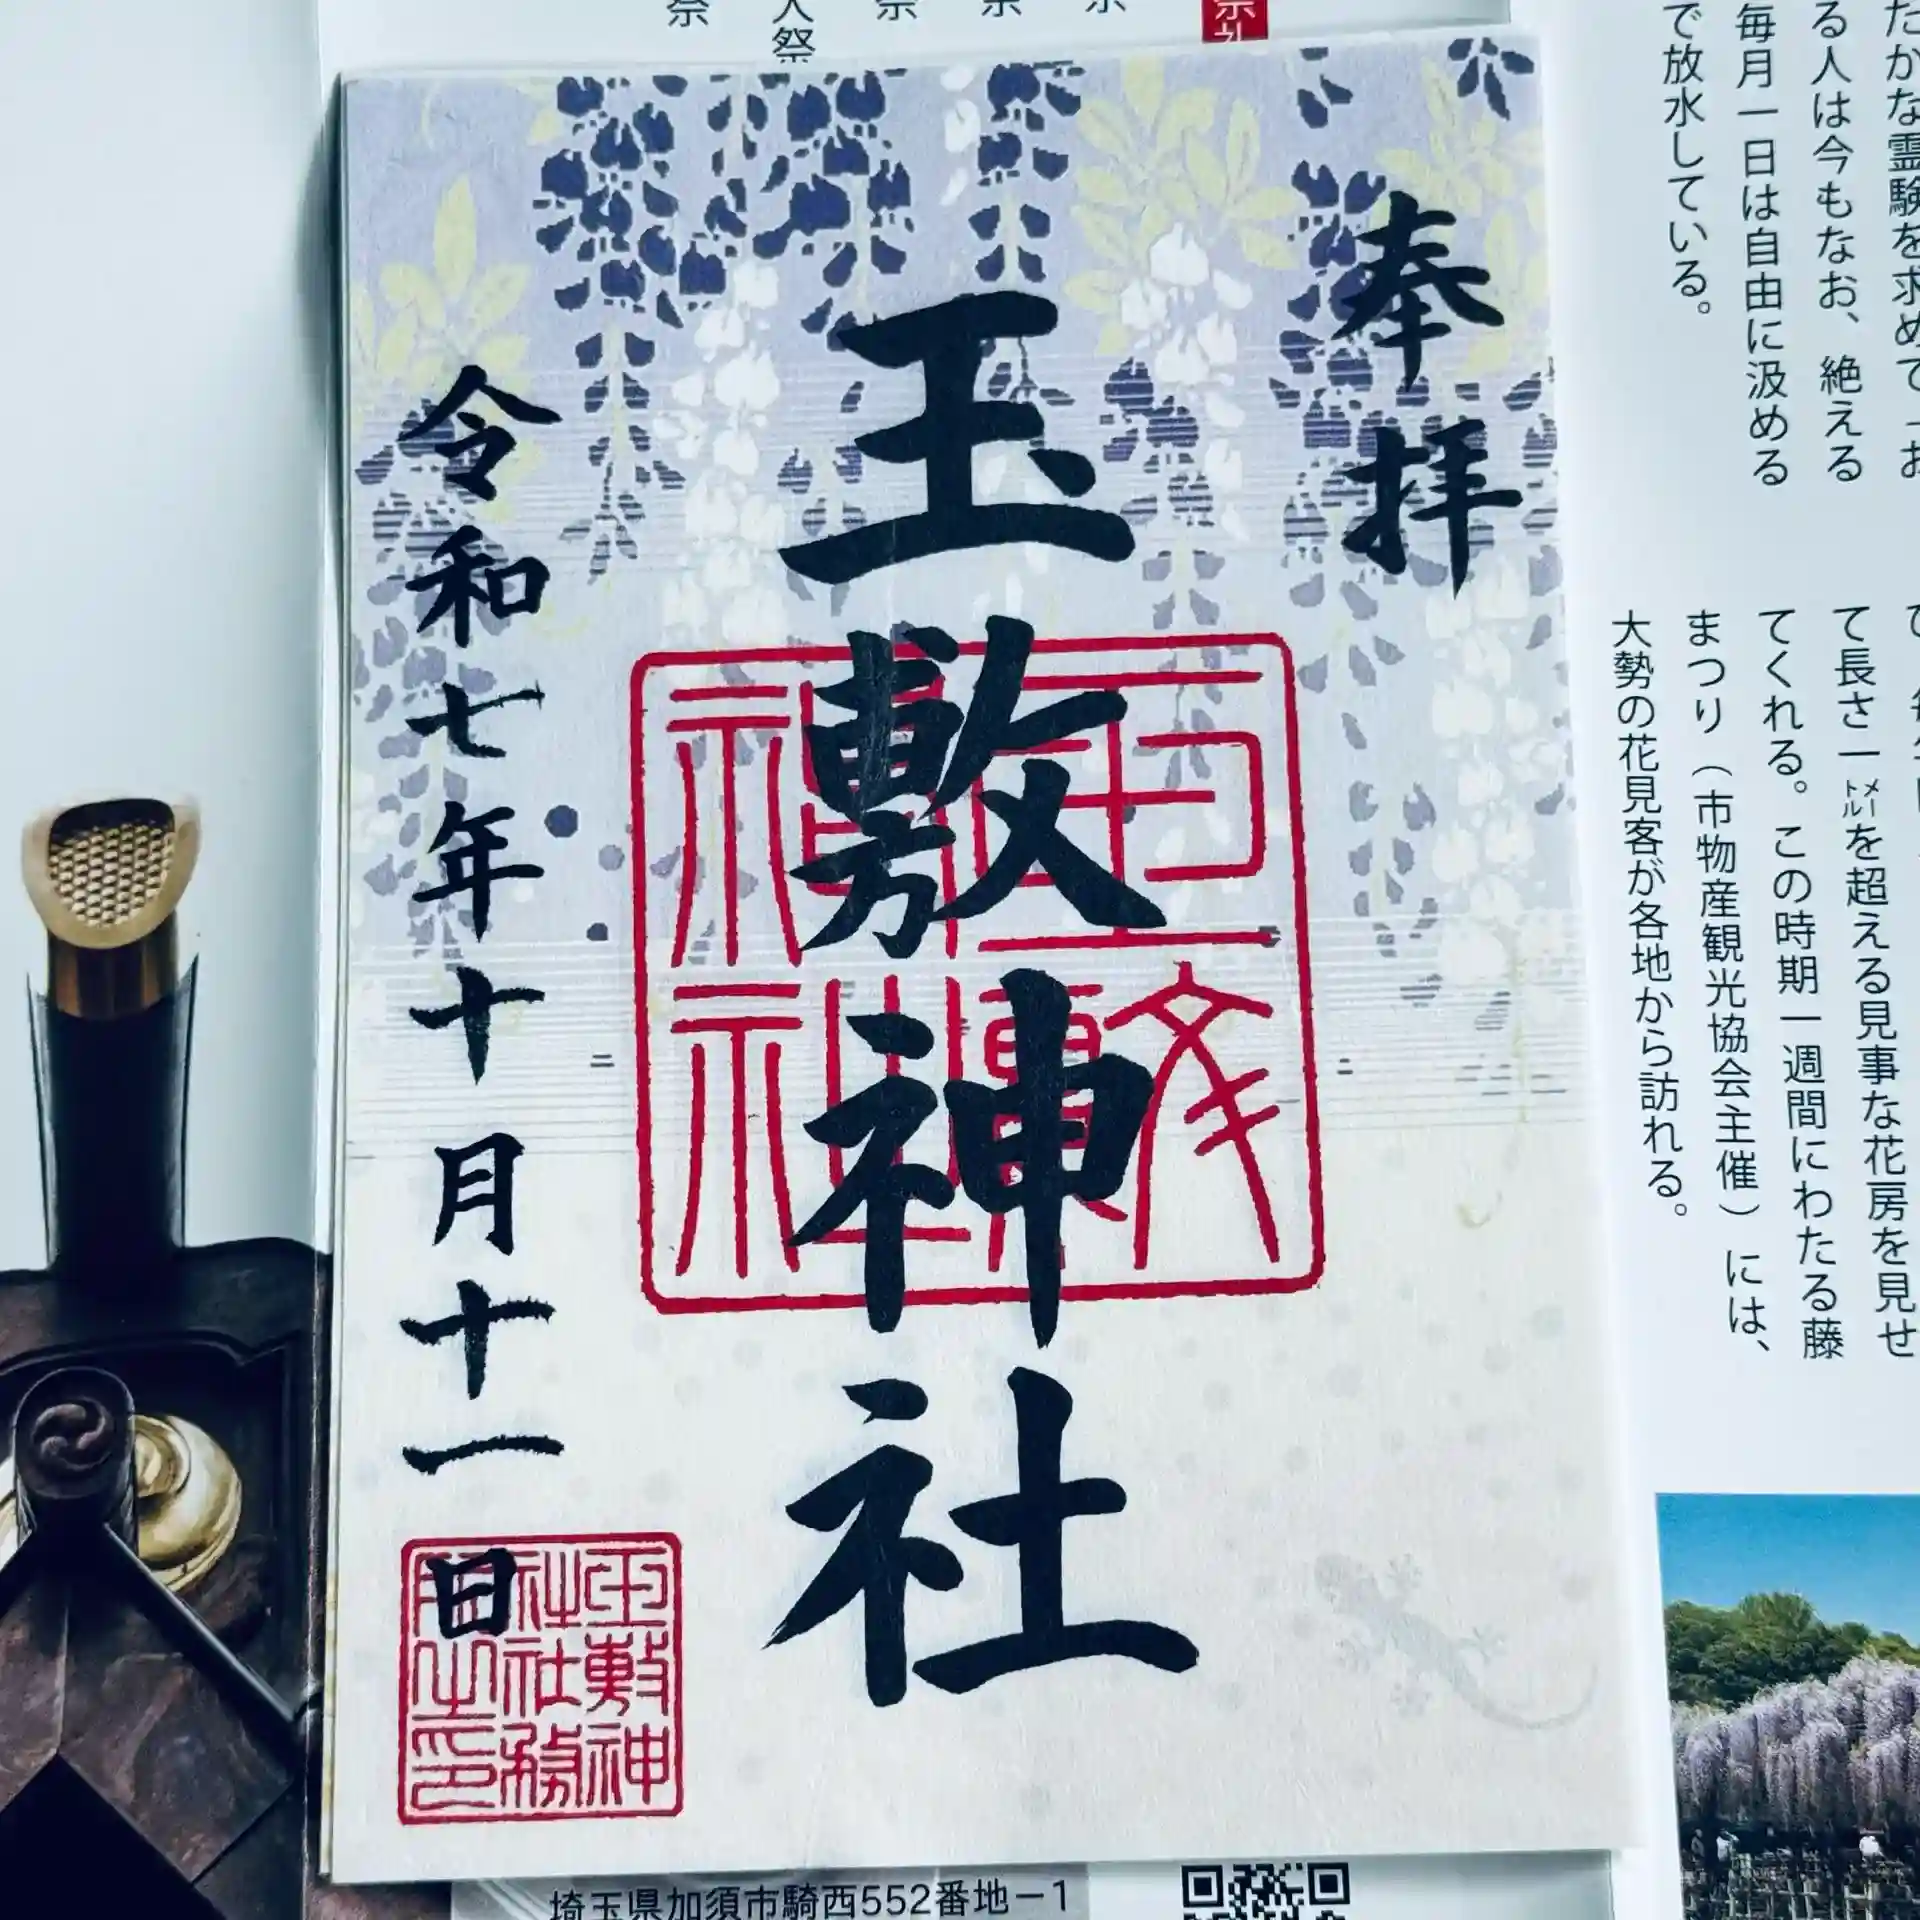 奉拝
玉敷神社
令和七年十月十一日
玉敷神
社社務
所之印
たかな霊験を求めて「お
る人は今もなお、絶える
毎月一日は自由に汲める
で放水している。
て長さ一メートルを超える見事な花房を見せ
てくれる。この時期一週間にわたる藤
まつり（市物産観光協会主催）には、
大勢の花見客が各地から訪れる。
埼玉県加須市騎西552番地－1